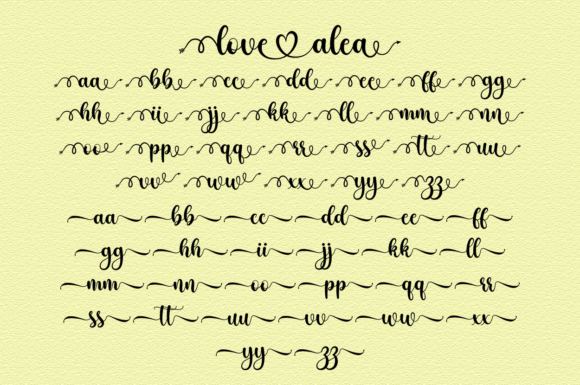 love alea
aa bb cc dd ee ff gg
hh ii jj kk ll mm nn
oo pp qq rr ss tt uu
vv ww xx yy zz
aa bb cc dd ee ff
gg hh ii jj kk ll
mm nn oo pp qq rr
ss tt uu vv ww xx
yy zz